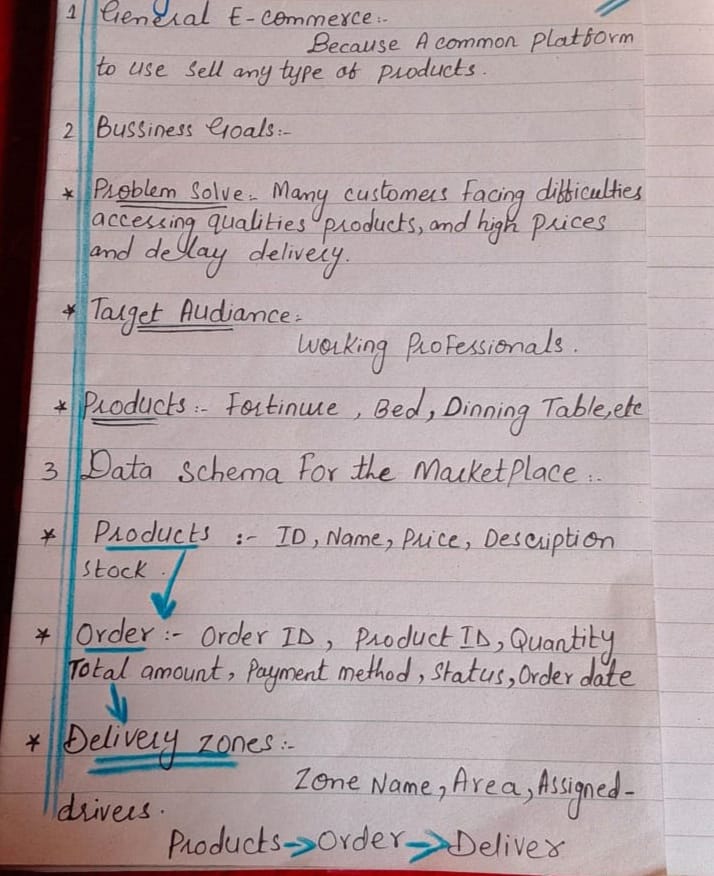 1 General E-commerce:-
Because A common Platform
to use sell any type of products.
2 Bussiness Goals:-
* Problem Solve:- Many customers facing difficulties
accessing qualities products, and high prices
and dellay delivery.
* Target Audiance:
Working Professionals.
* Products:- Fortinure, Bed, Dinning Table, etc
3 Data Schema For the MarketPlace:-
* Products :- ID, Name, Price, Description
stock.
* Order:- Order ID, Product ID, Quantity
Total amount, Payment method, Status, Order date
* Delivery zones:-
Zone Name, Area, Assigned-
drivers.
Products→Order→Deliver